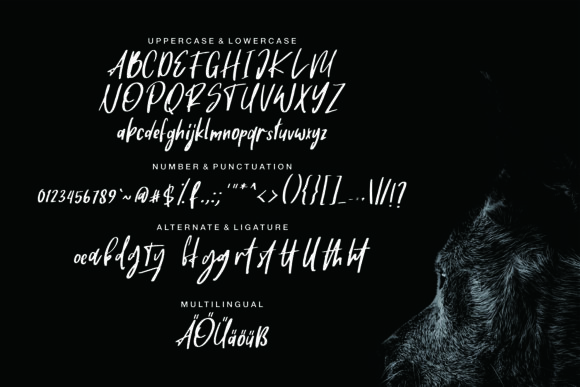 UPPERCASE & LOWERCASE
ABCDEFGHIJKLM
NOPQRSTUVWXYZ
abcdefghijklmnopqrstuvwxyz
NUMBER & PUNCTUATION
0123456789`~@#$%&.,:;'"*^<>(){}[]_-.+\|//!?
ALTERNATE & LIGATURE
MULTILINGUAL
ÄÖÜäöüß